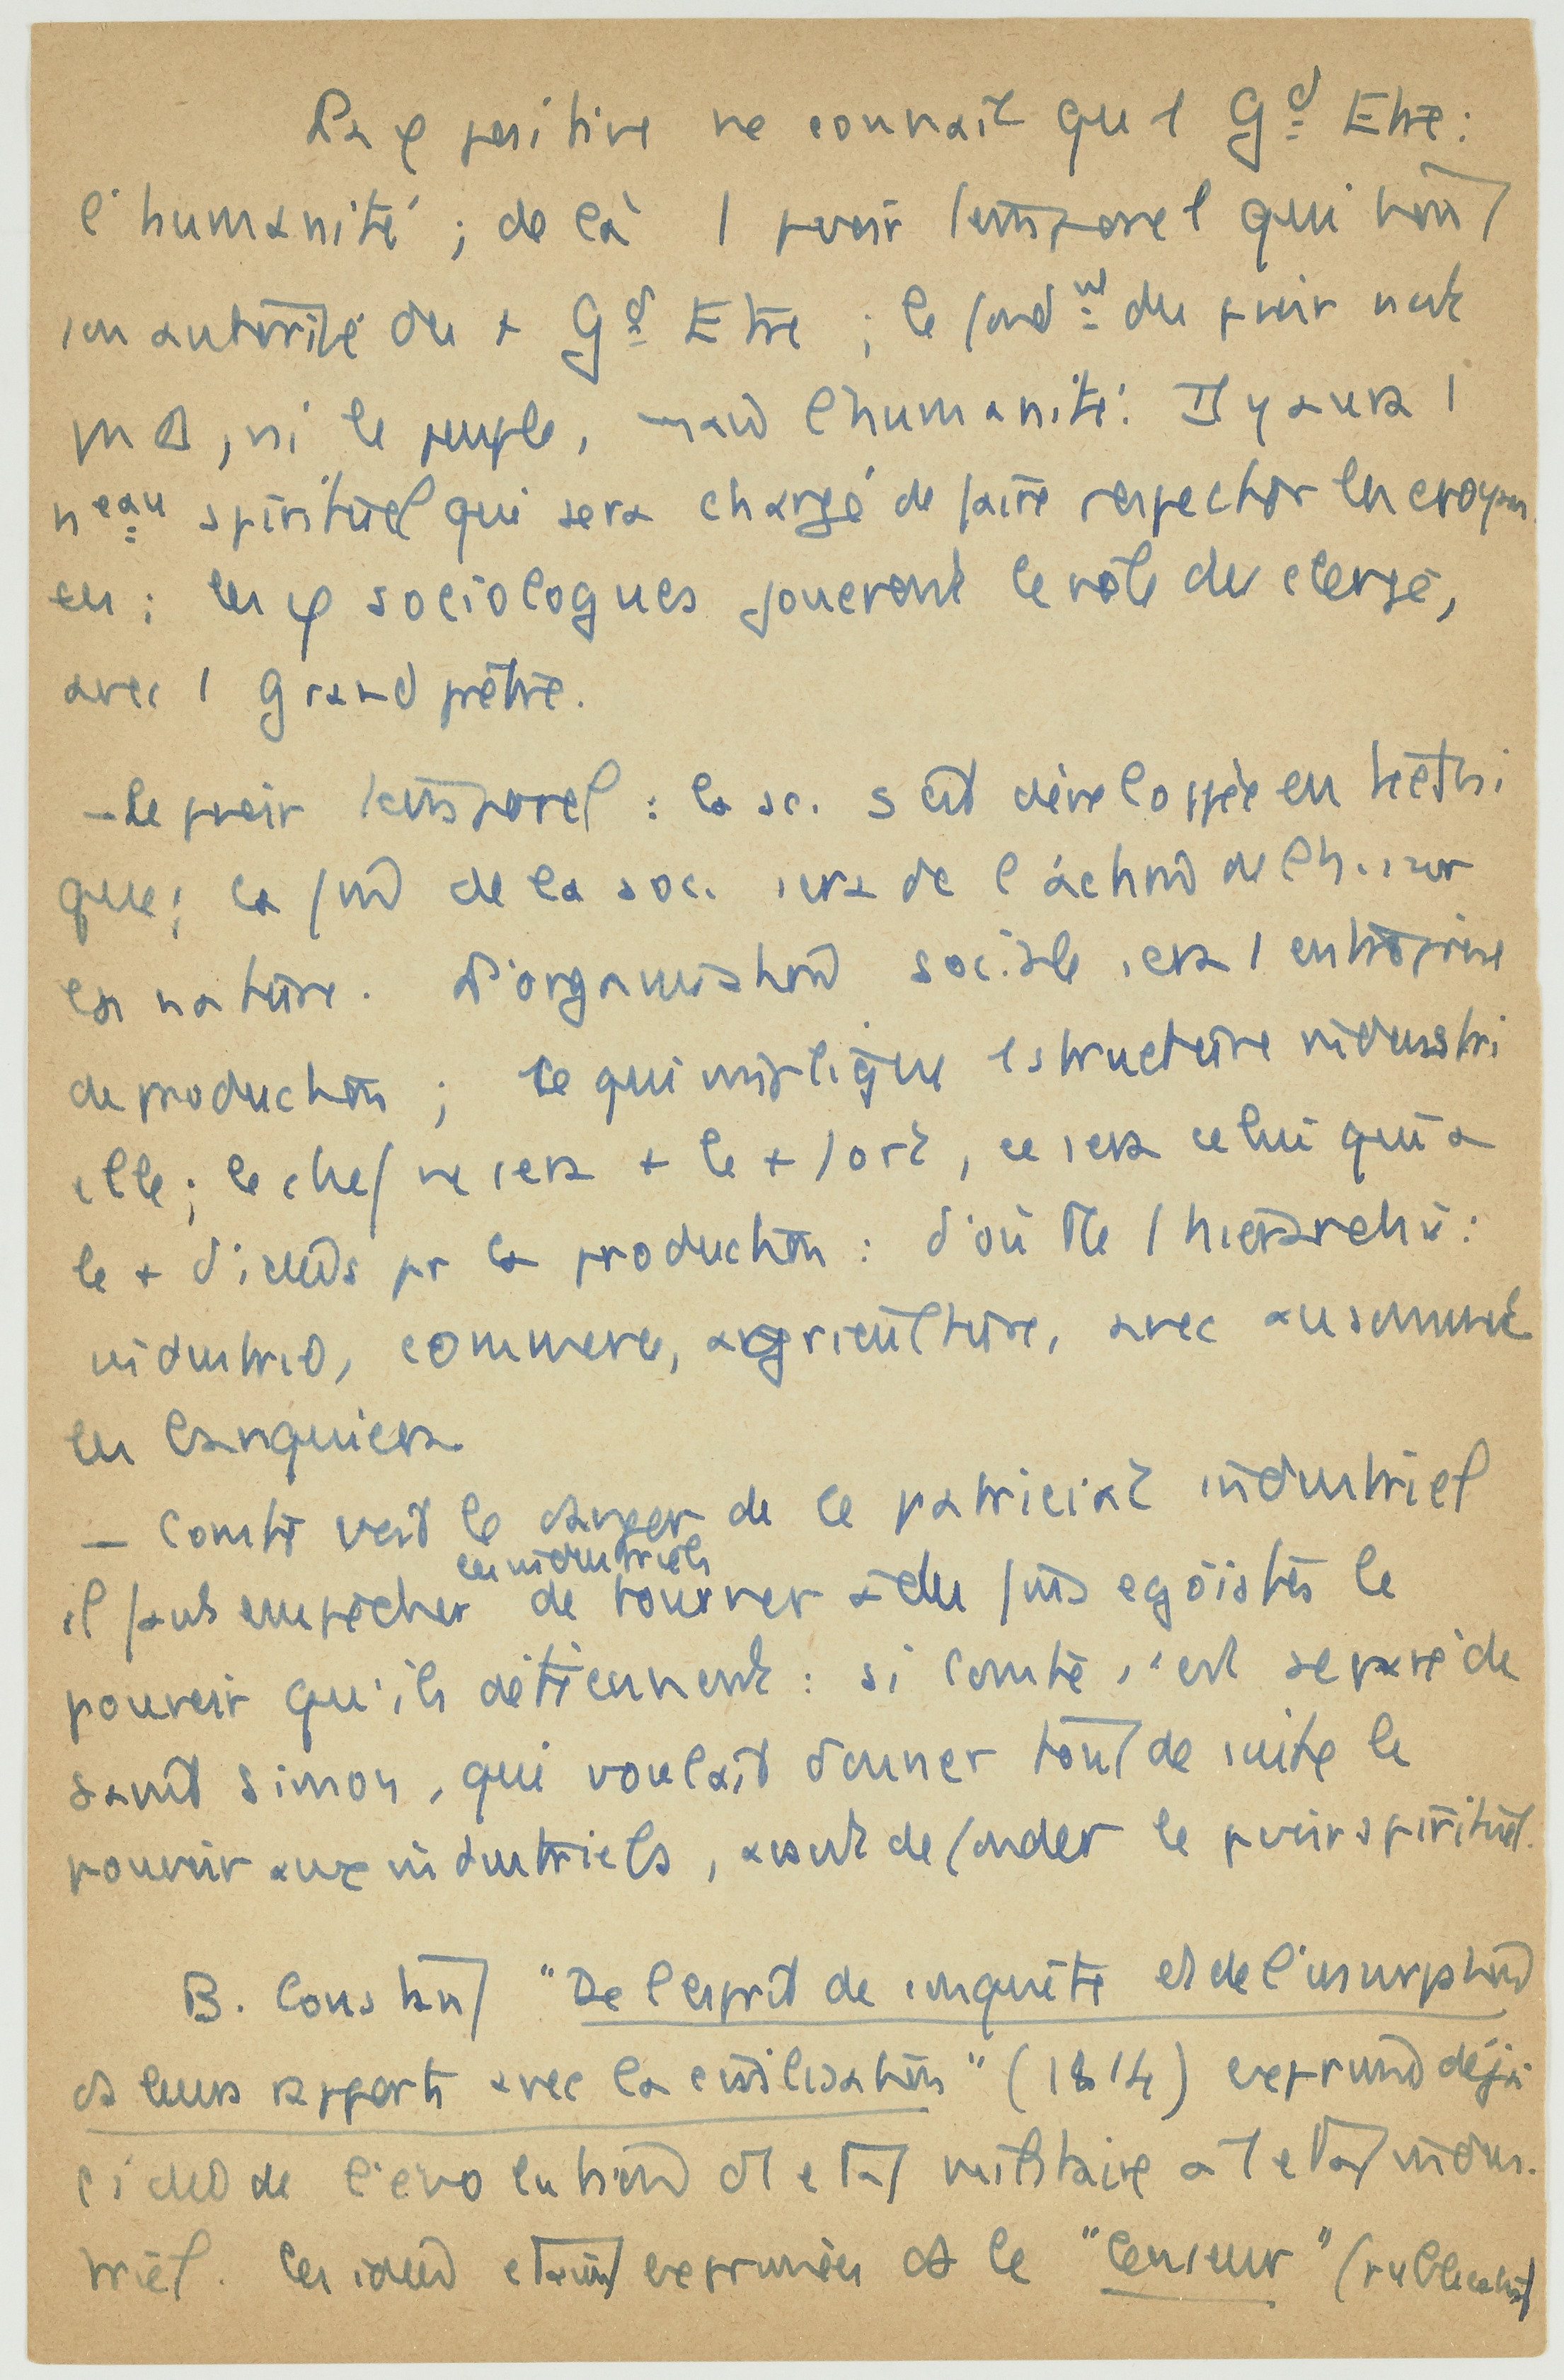 La φ positive ne connait qu'1 Gd Etre :
l'humanité ; de là 1 pvoir temporel qui tout
son autorité du + Gd Etre ; le fondmt du pvoir n'est
ni le peuple, mais l'humanité. Il y aura 1
neau spirituel qui sera chargé de faire respecter les croyan
ces ; les φ sociologues joueront le rôle du clergé,
avec 1 grand prêtre.
- Le pvoir temporel : la sc. s'est développée en techni
que ; la fin de la soc. sera de l'action de l'h. sur
la nature. L'organisation sociale sera 1 entreprise
de production ; ce qui implique 1 structure industri
elle ; le chef ne sera + le + fort, ce sera celui qui a
le + d'idées pr la production : d'où tte 1 hiérarchie :
industrie, commerce, agriculture, avec au sommet
les banquiers
- Comte voit le danger de ce patriciat industriel
les industriels
il faut empêcher de tourner à des fins egoïstes le
pouvoir qu'ils détiennent : si Comte s'est séparé de
Saint Simon, qui voulait donner tout de suite le
pouvoir aux industriels, avant de fonder le pvoir spirituel.
B. Constant "De l'esprit de conquête et de l'usurpation
et leurs rapports avec la civilisation" (1814) exprime déjà
l'idée de l'évolution de l'etat militaire à l'etat indus.
triel. Les idées etaient exprimées ds le "Censeur" (publication